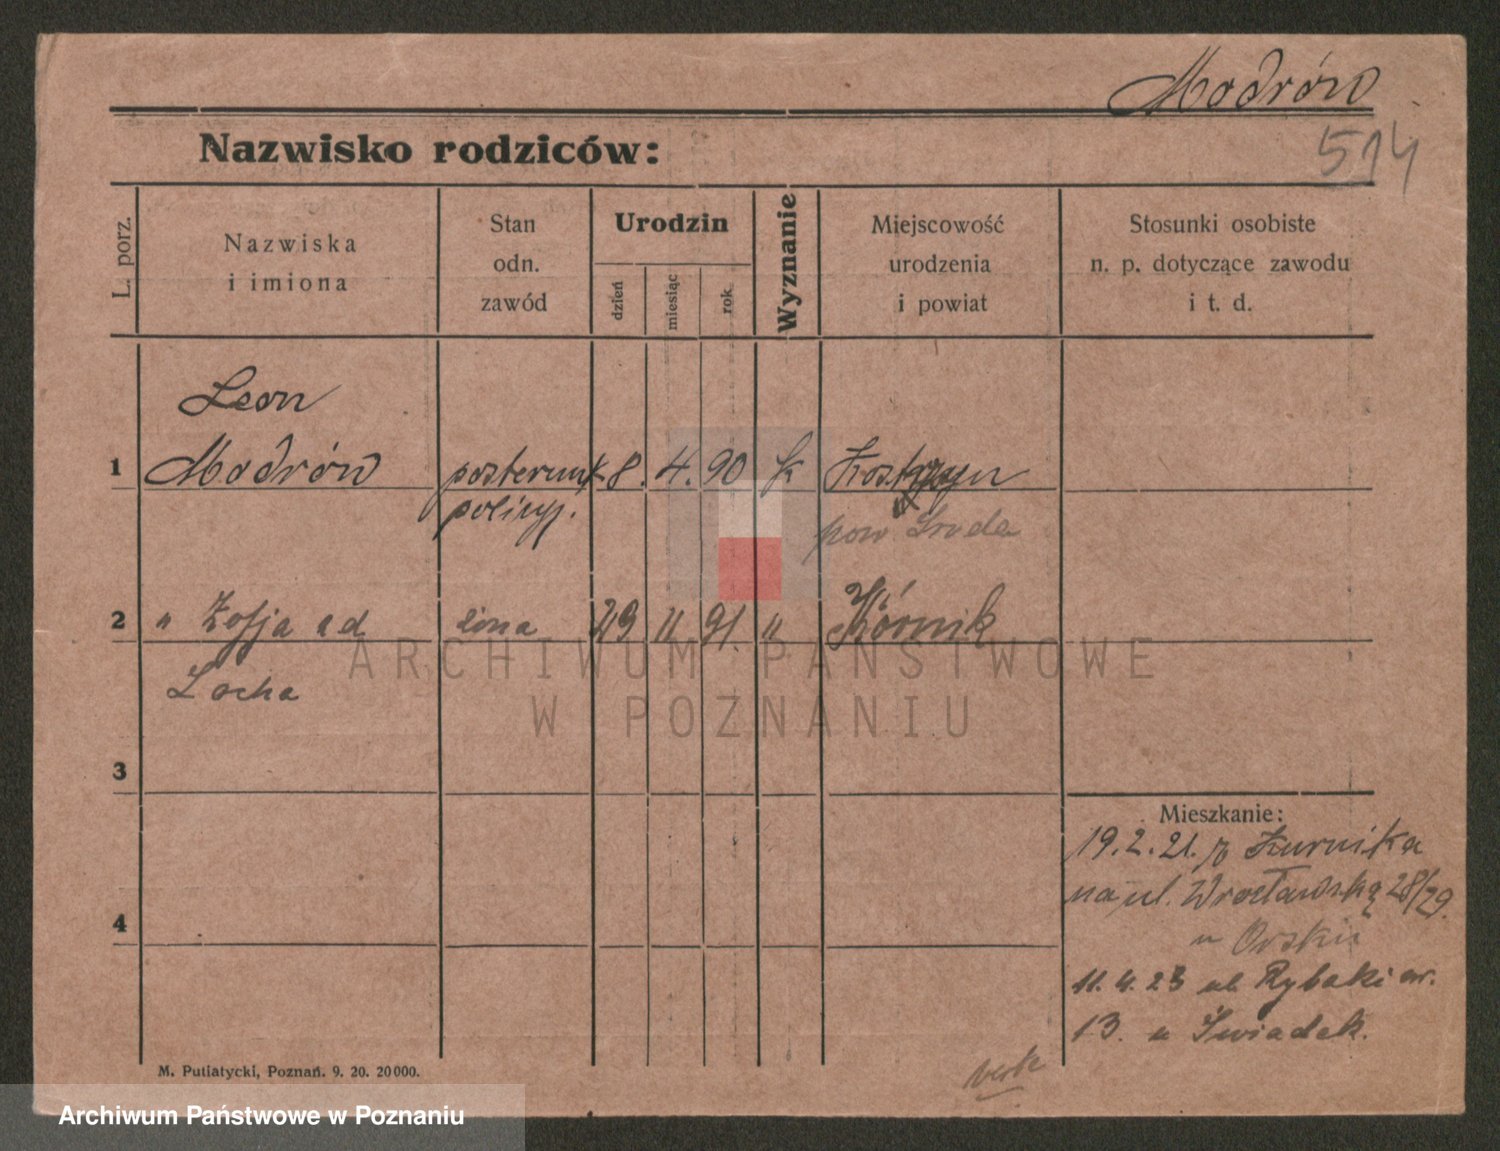 Modrów
514
Nazwisko rodziców:
L. porz.
Nazwiska
i imiona
Stan
odn.
zawód
Urodzin
dzień
miesiąc
rok.
Wyznanie
Miejscowość
urodzenia
i powiat
Stosunki osobiste
n. p. dotyczące zawodu
i t. d.
Leon
1 Modrów posterunk 8. 4. 90 k Kostrzyn
policyj.
pow Środa
2 " Zofja ed żona 29 11 91. " Kórnik
Locha
3
4
Mieszkanie:
19.2.21. z Kurnika
na ul. Wrocławską 28/29.
u
11.4.23 ul. Rybaki nr.
13. u Świadek.
M. Putiatycki, Poznań. 9. 20. 20000.
ARCHIWUM PAŃSTWOWE
W POZNANIU
Archiwum Państwowe w Poznaniu